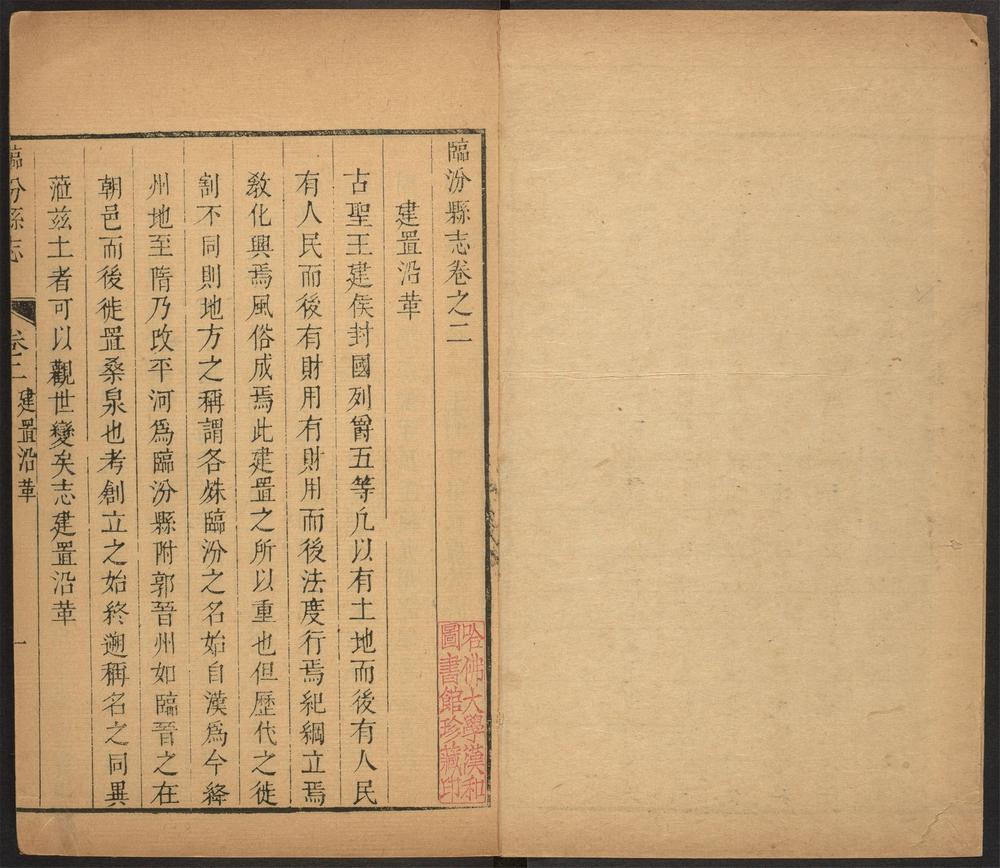 臨汾縣志卷之二
建置沿革
古聖王建侯封國列爵五等凢以有土地而後有人民
有人民而後有財用有財用而後法度行焉紀綱立焉
敎化興焉風俗成焉此建置之所以重也但歷代之徙
割不同則地方之稱謂各殊臨汾之名始自漢爲今絳
州地至隋乃改平河爲臨汾縣附郭晉州如臨晉之在
朝邑而後徙置桑泉也考創立之始終遡稱名之同異
蒞兹土者可以觀世變矣志建置沿革
臨汾縣志 卷二 建置沿革 一
哈佛大學漢和
圖書館珍藏印